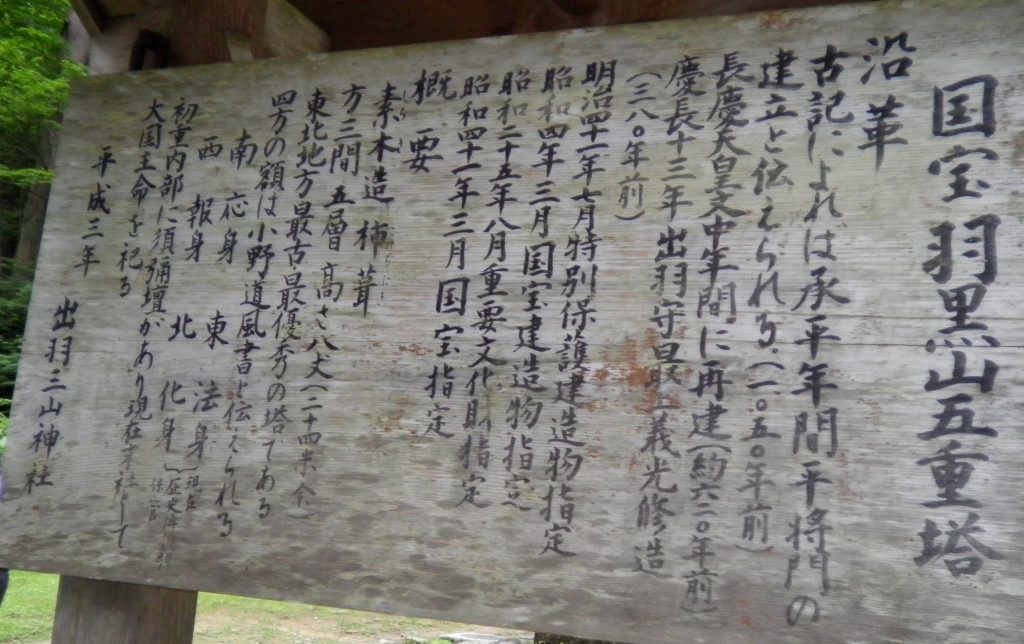 国宝羽黒山五重塔
沿革
古記によれば承平年間平将門の
建立と伝えられる(一〇五〇年前)
長慶天皇文中年間に再建(約六二〇年前)
慶長十三年出羽守最上義光修造
(三八〇年前)
明治四十一年七月特別保護建造物指定
昭和四年三月国宝建造物指定
昭和二十五年八月重要文化財指定
昭和四十一年三月国宝指定
概要
素木造 柿葺
方三間 五層 高さ八丈(二十四米余)
東北地方最古最優秀の塔である
四方の額は小野道風書と伝えられる
南 応身 東 法身
西 報身 北 化身
現在
保管
初重内部に須彌壇があり現在末社として
大国主命を祀る
平成三年
出羽三山神社